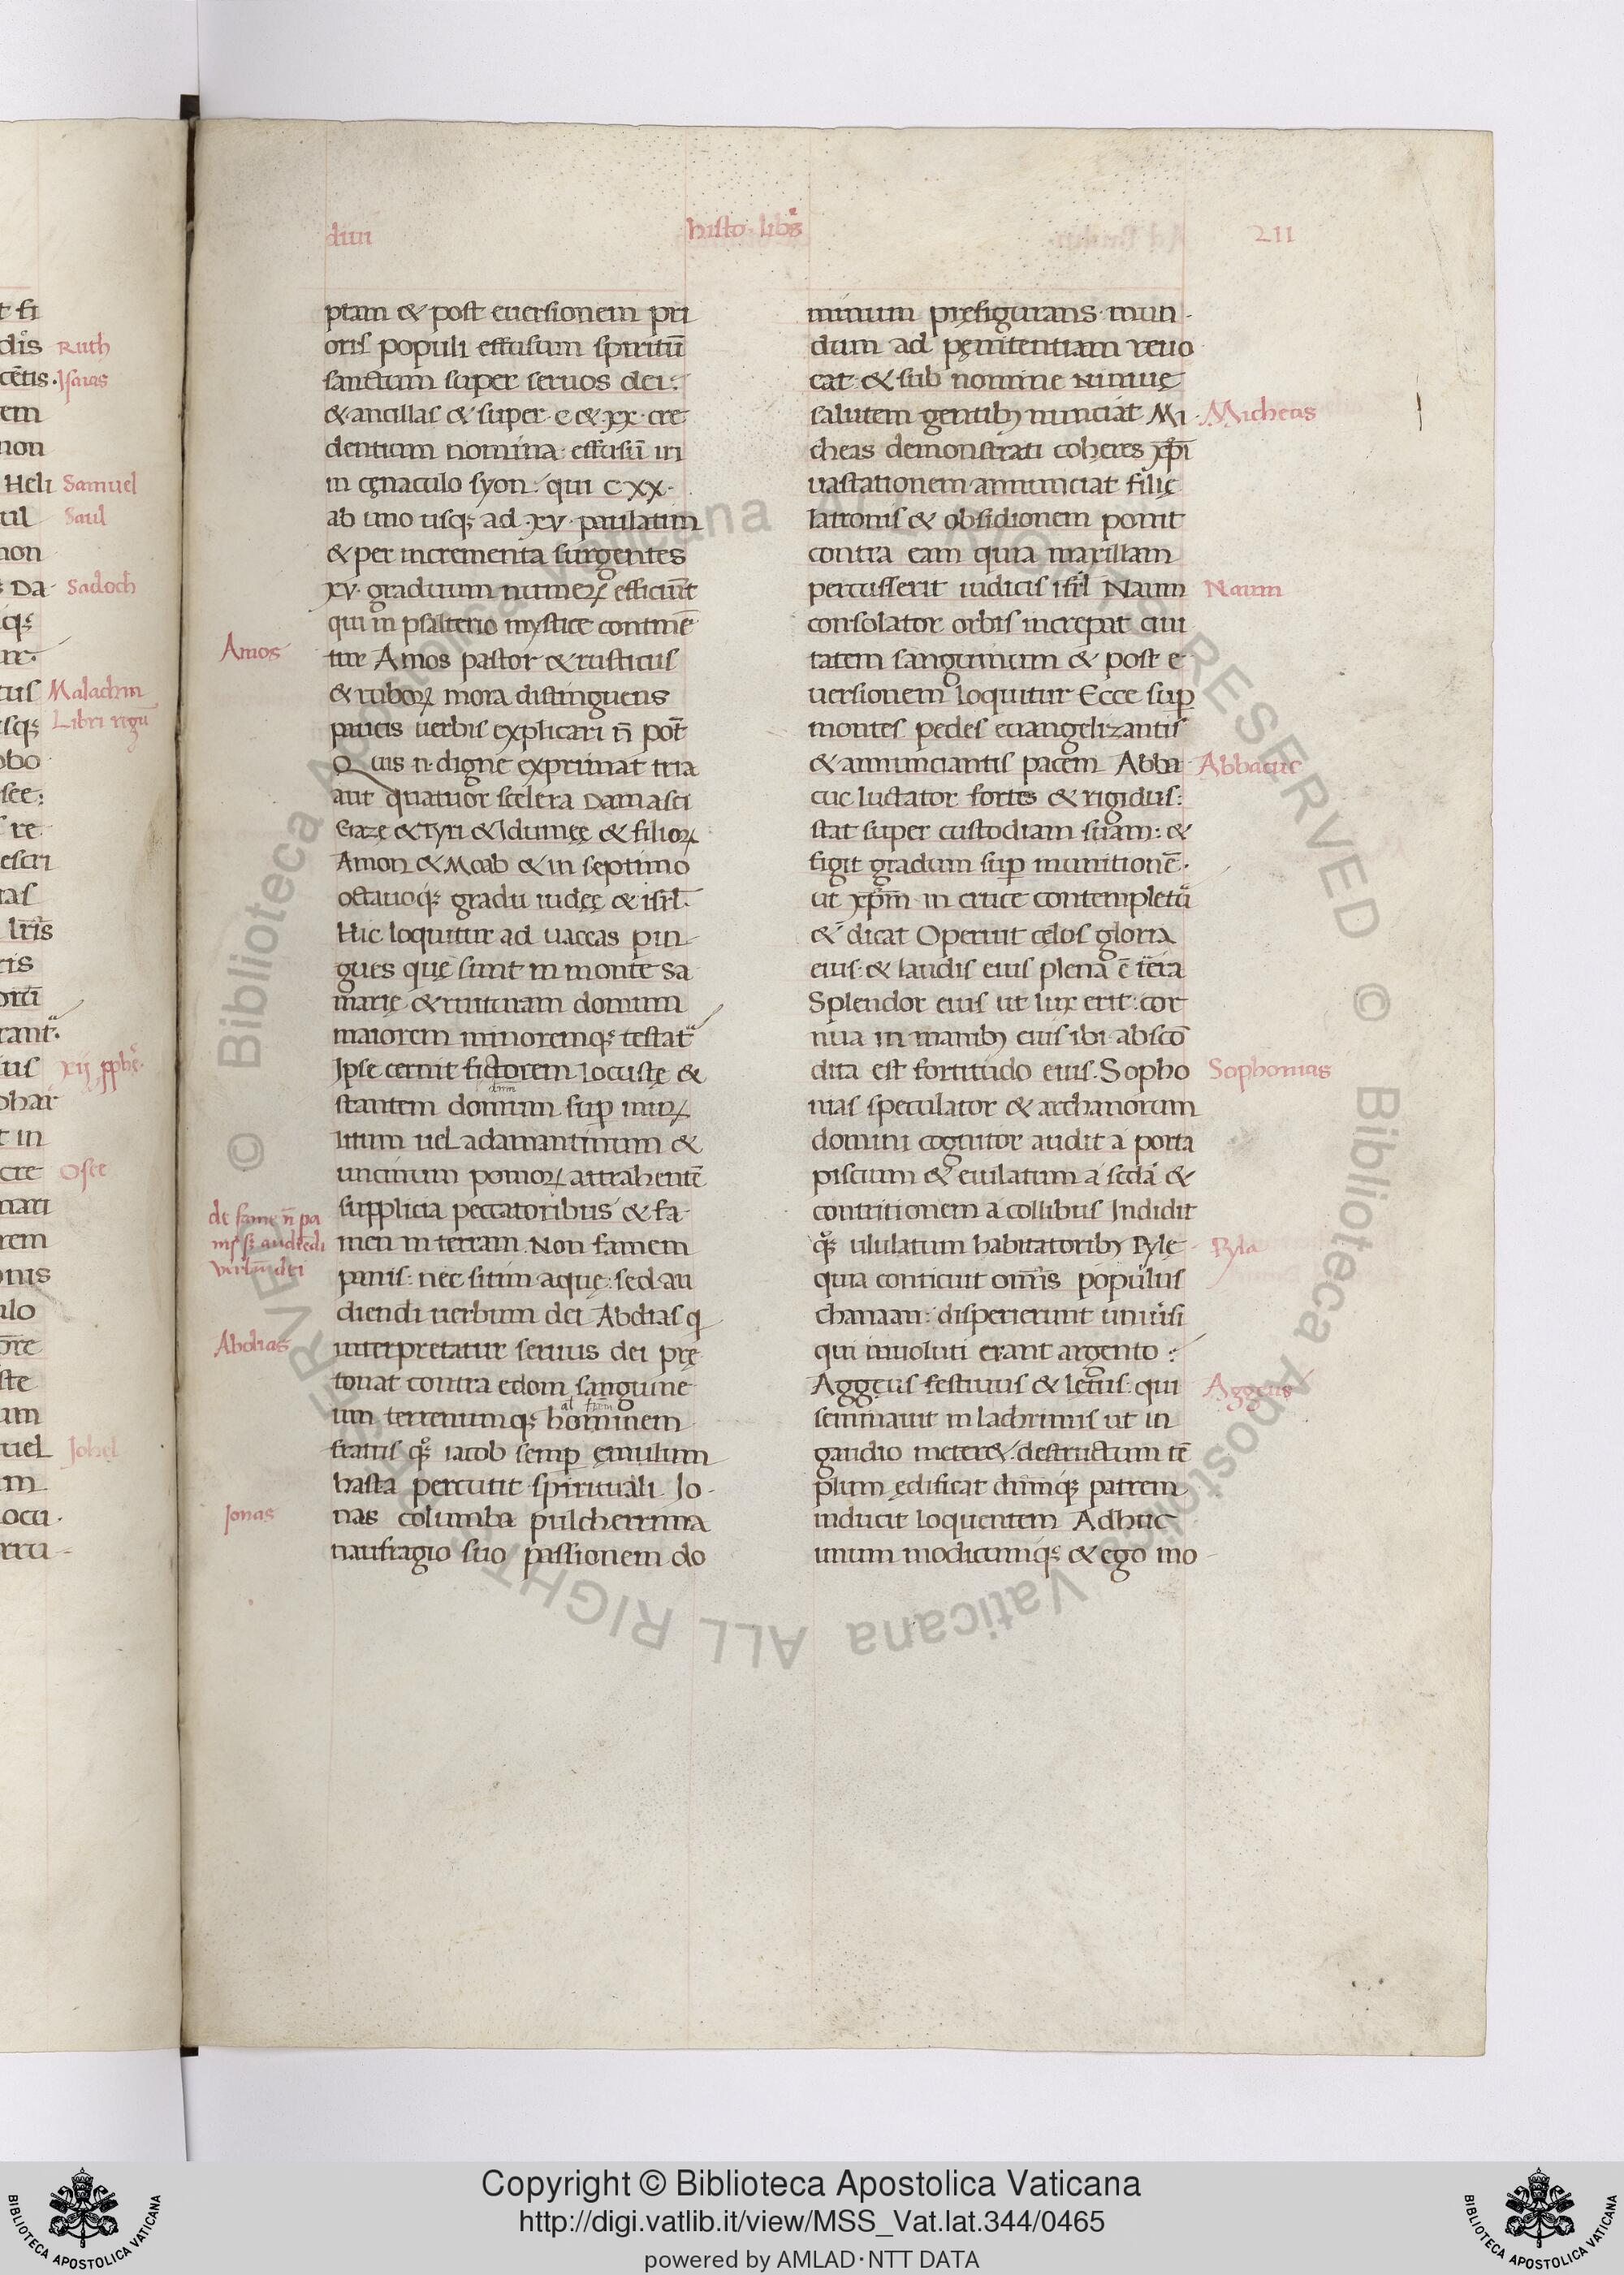 diui
histo. libs
211
ptam & post euersionem pri
oris populi effusum spiritū
sanctum super seruos dei:
& ancillas & super · c & xx · cre
dentium nomina effusū iri
in cęnaculo syon: qui c xx ·
ab uno usq; ad · xv · paulatim
& per incrementa surgentes
xv · graduum numeꝝ efficiūt
qui in psalterio mystice continē
Amos
tur Amos pastor & rusticus
& ruboꝝ mora distinguens
paucis uerbis explicari n̄ pot̄
Quis n · digne exprimat tria
aut quatuor scelera Damasci
Gazę & Tyri & Idumęę & filioꝝ
Amon & Moab & in septimo
octauoq; gradu iudęę & isrl̄.
Hic loquitur ad uaccas pin
gues quę sunt in monte Sa
marię & ruituram domum
maiorem minoremq; testat
Ipse cernit fictorem locustę &
dnm
stantem domum suꝑ muꝝ
litum uel adamantinum &
uncinum pomoꝝ attrahentē
de fame n̄ pa
nis s; audiēdi
verbum dei
supplicia peccatoribus & fa
men in terram Non famem
panis: nec sitim aquę: sed au
diendi uerbum dei Abdias q
Abdias
interpretatur seruus dei per
tonat contra edom sanguine
al frm
um terrenumq; hominem
fratris q; iacob semꝑ ęmulum
hasta percutit spirituali Io ·
Jonas
nas columba pulcherrima
naufragio suo passionem do
minum pręfigurans · mun ·
dum ad pęnitentiam reuo
cat & sub nomine Niniuę
salutem gentibꝫ nunciat Mi ·
Micheas
cheas demonstrati coheres xp̄i
uastationem annunciat filię
latronis & obsidionem ponit
contra eam quia maxillam
percusserit iudicis isrl̄ Naum
Naum
consolator orbis increpat ciui
tatem sanguinum & post e
uersionem loquitur Ecce suꝑ
montes pedes euangelizantis
& annunciantis pacem Abba
Abbacuc
cuc luctator fortis & rigidus:
stat super custodiam suam: &
figit gradum suꝑ munitionē ·
ut xp̄m in cruce contempletur
& dicat Operuit cęlos gloria
eius: & laudis eius plena ē terra
Splendor eius ut lux erit: cor
nua in manibꝫ eius ibi abscō
dita est fortitudo eius. Sopho
Sophonias
nias speculator & archanorum
domini cognitor audit a porta
piscium & eiulatum a seda &
contritionem a collibus Indidit
q; ululatum habitatoribꝫ Pylę
Pyla
quia conticuit omnis populus
chanaan: disperierunt uniuersi
qui inuoluti erant argento:
Aggęus festiuus & lętus: qui
Aggęus
seminauit in lachrimis ut in
gaudio meteret: destructum tē
plum ędificat dnmq; patrem
inducit loquentem Adhuc
unum modicumq; & ego mo
t fi
dis
Ruth
cētis.
Isaias
em
non
Heli
Samuel
ul
Saul
non
Da
Sadoch
q;
ur.
tus
Malachin
sq;
Libri regū
obo
see:
re
escri
as
lr̄is
ris
rant.
ius
xij pphe
bhar
t in
cre
Osee
mari
rem
onis
ulo
ore
ste
um
uel
Johel
m
ocu ·
rru
© Biblioteca Apostolica Vaticana ALL RIGHTS RESERVED
© Biblioteca Apostolica Vaticana ALL RIGHTS RESERVED
Copyright © Biblioteca Apostolica Vaticana
http://digi.vatlib.it/view/MSS_Vat.lat.344/0465
powered by AMLAD·NTT DATA
BIBLIOTECA APOSTOLICA VATICANA
BIBLIOTECA APOSTOLICA VATICANA